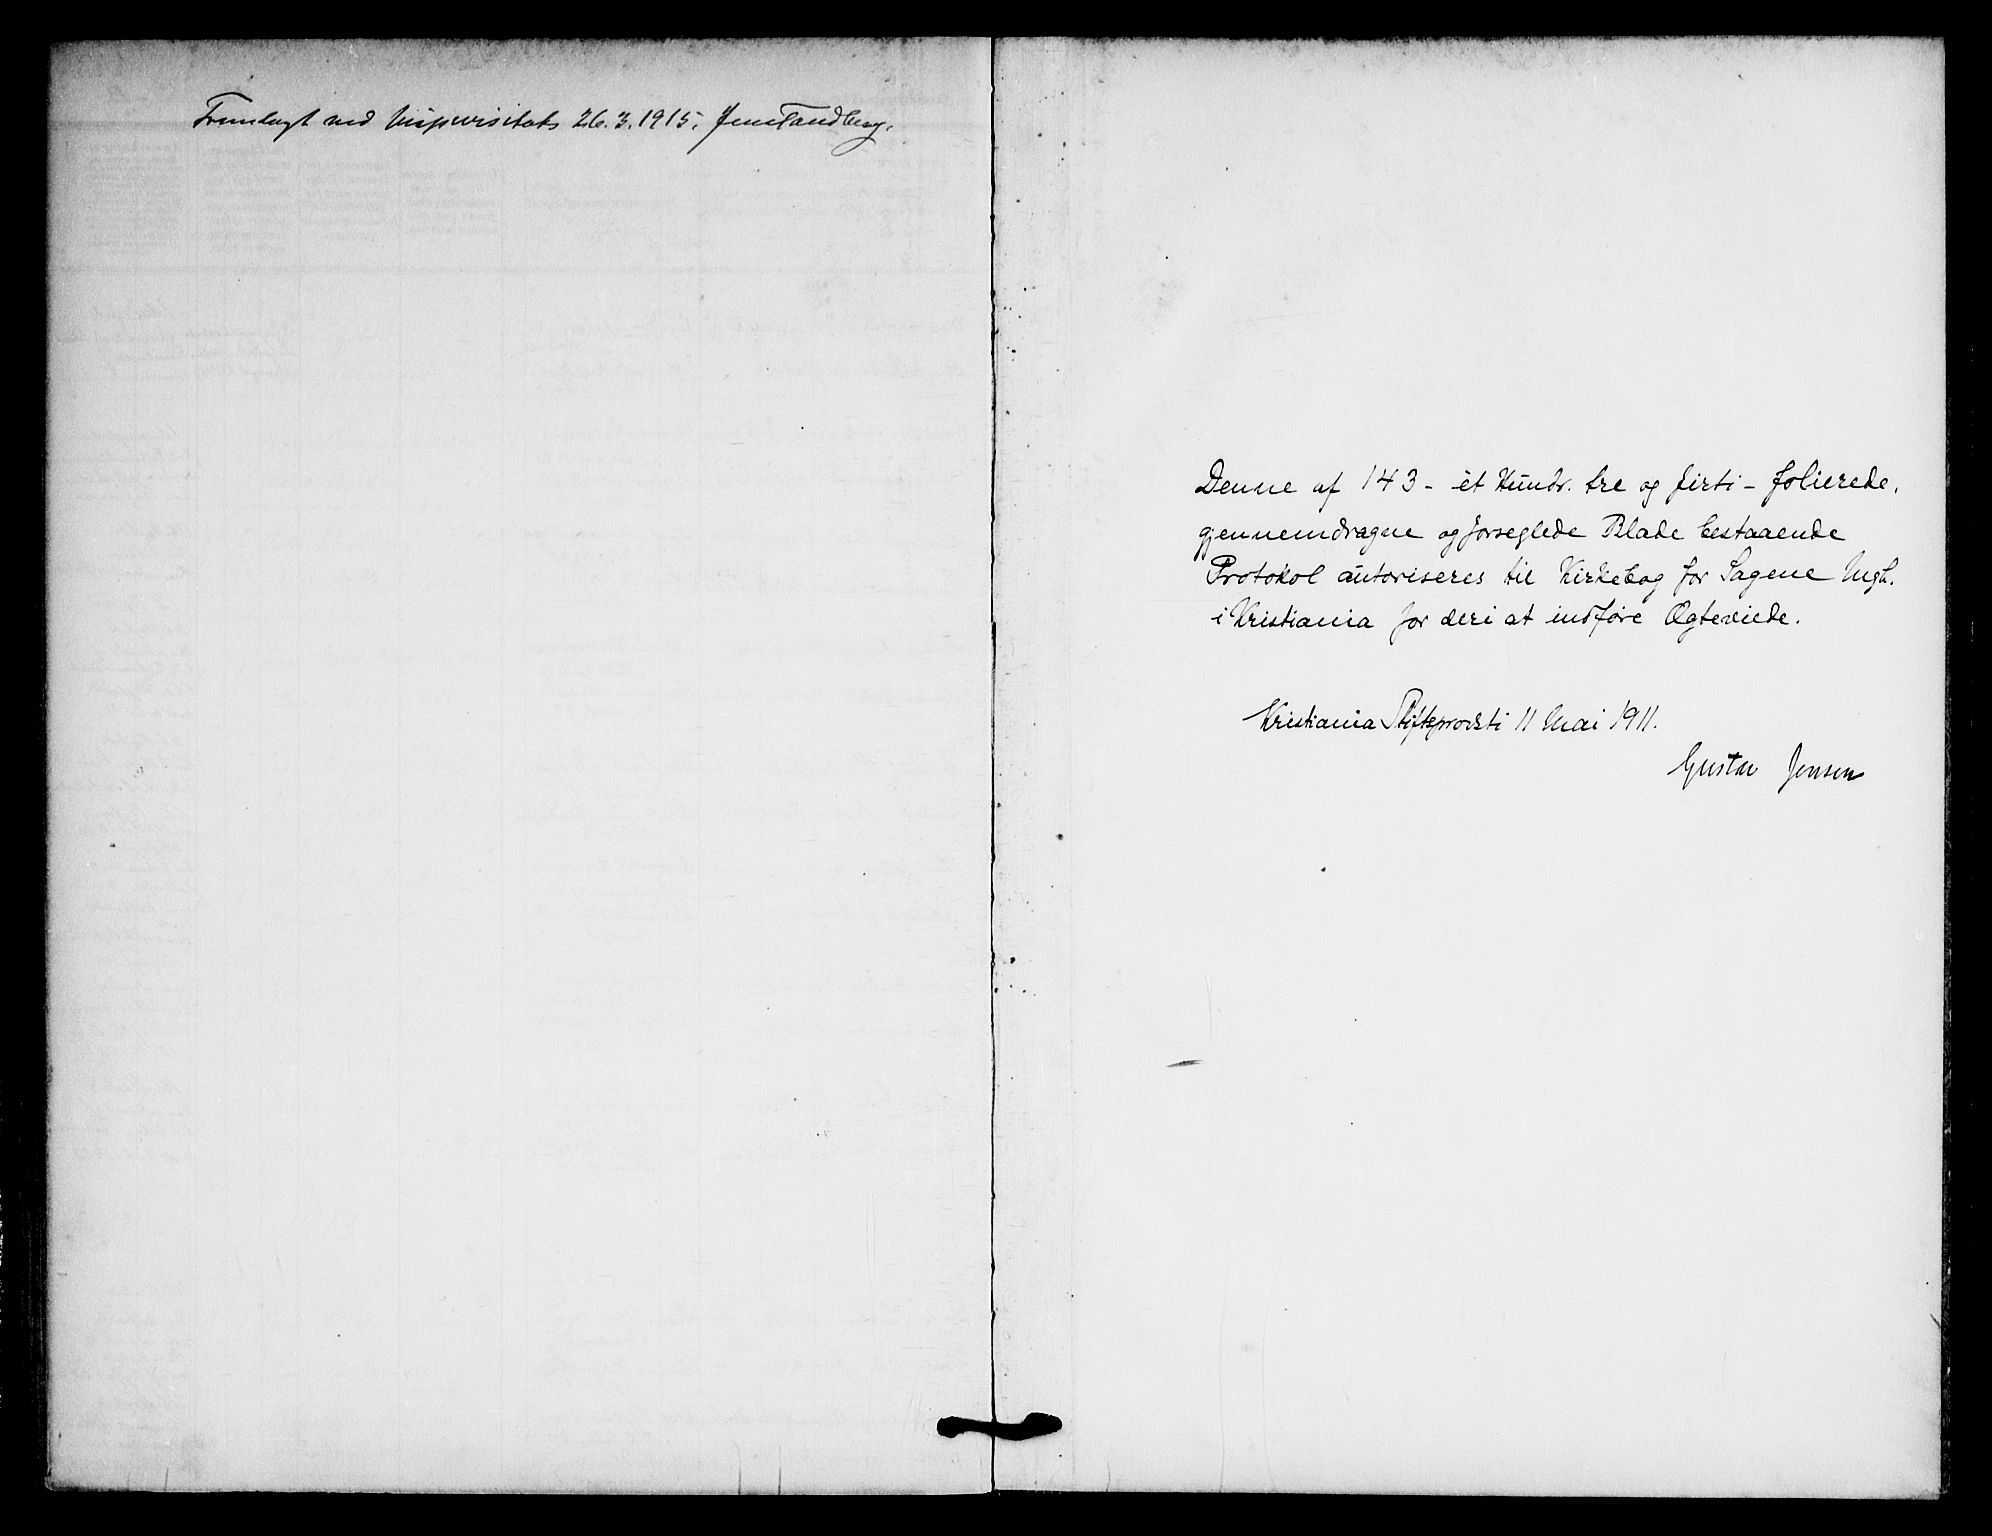 Fremlagt ved bispevisitats 26.3.1915. Jens Tandberg.
Denne af 143 - èt Hundr. tre og firti - folierede,
gjennemdragne og forseglede Blade bestaaende
Protokol autoriseres til Kirkebog for Sagene Mgh.
i Kristiania for deri at indføre Ægteviede.
Kristiania Stiftsprovsti 11 Mai 1911.
Gustav Jensen